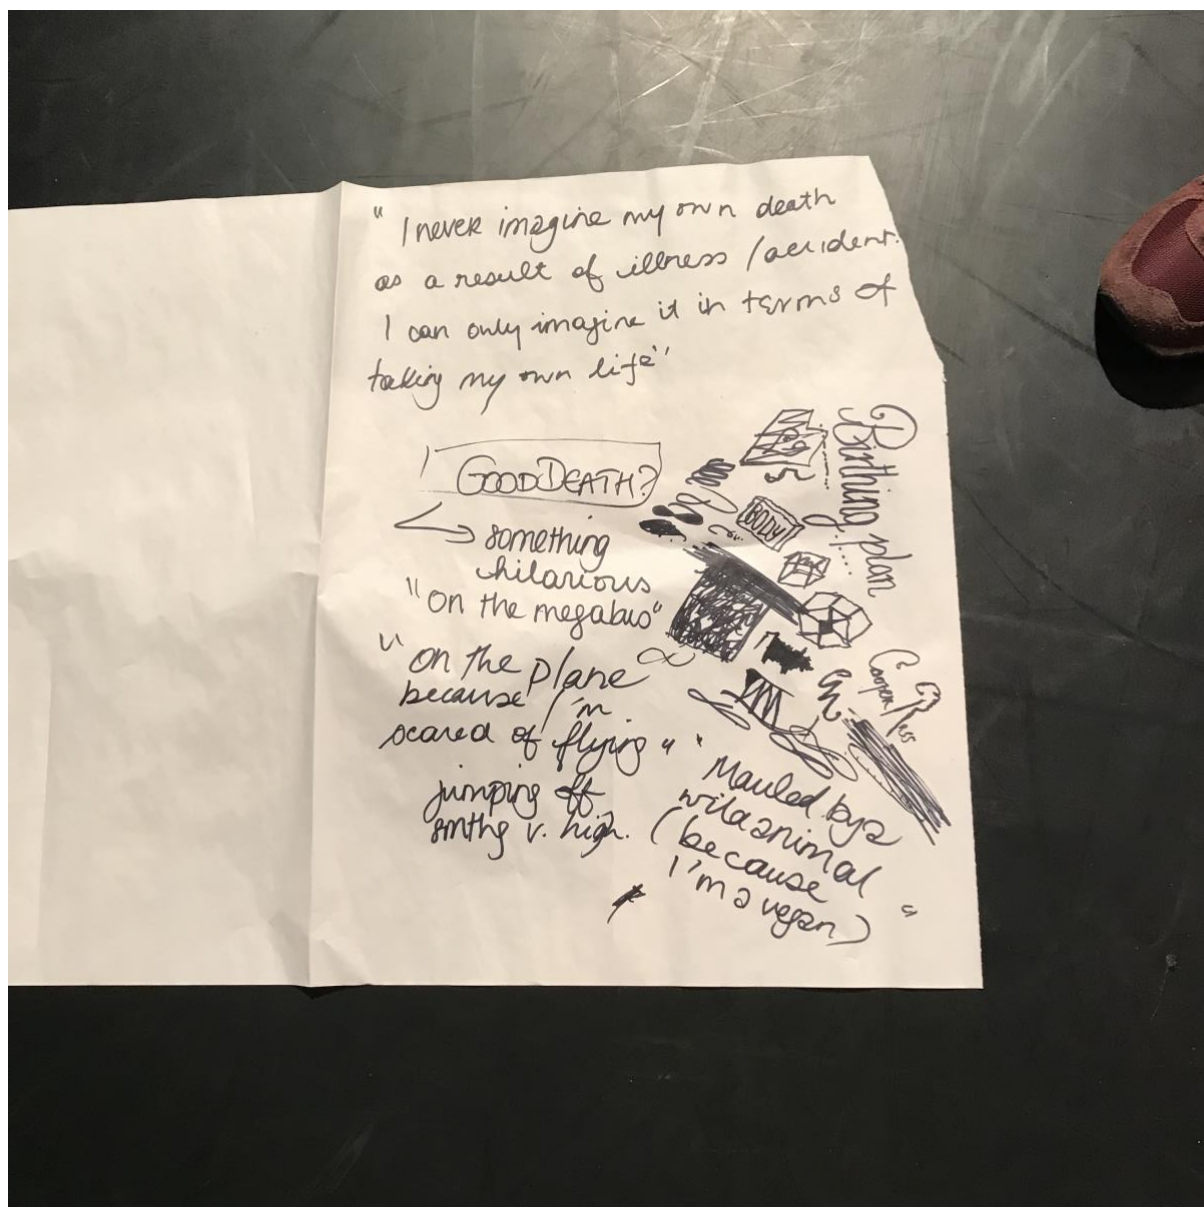 " I never imagine my own death
as a result of illness / accident.
I can only imagine it in terms of
taking my own life"
GOOD DEATH?
something
hilarious
"on the megabus"
"on the plane
because I'm
scared of flying"
jumping off
smthg v. high.
Birthing plan
BODY
"Mauled by a
wild animal
(because
I'm a vegan)"